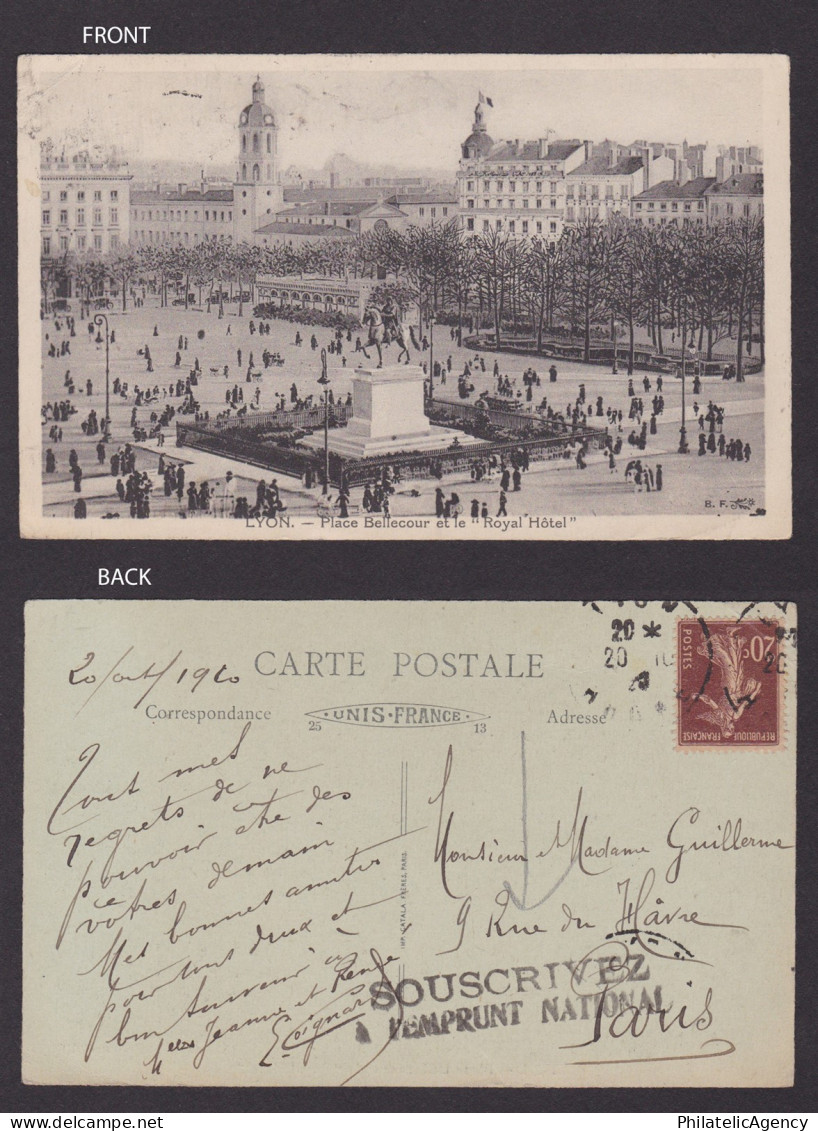 FRONT
LYON. — Place Bellecour et le "Royal Hôtel"
B. F.
BACK
20/oct/1920
CARTE POSTALE
Correspondance
UNIS-FRANCE
25
13
Adresse
20 *
20
20
20c
POSTES
REPUBLIQUE FRANCAISE
Tout mes
regrets de ne
pouvoir être des
vôtres demain
Mes bonnes amitiés
pour tous deux et
bon souvenir à
Melles Jeanne et Renée
IMP. CATALA FRÈRES, PARIS.
Monsieur et Madame Guillerme
9 Rue du Hâvre
Paris
SOUSCRIVEZ
À L'EMPRUNT NATIONAL
PhilatelicAgency